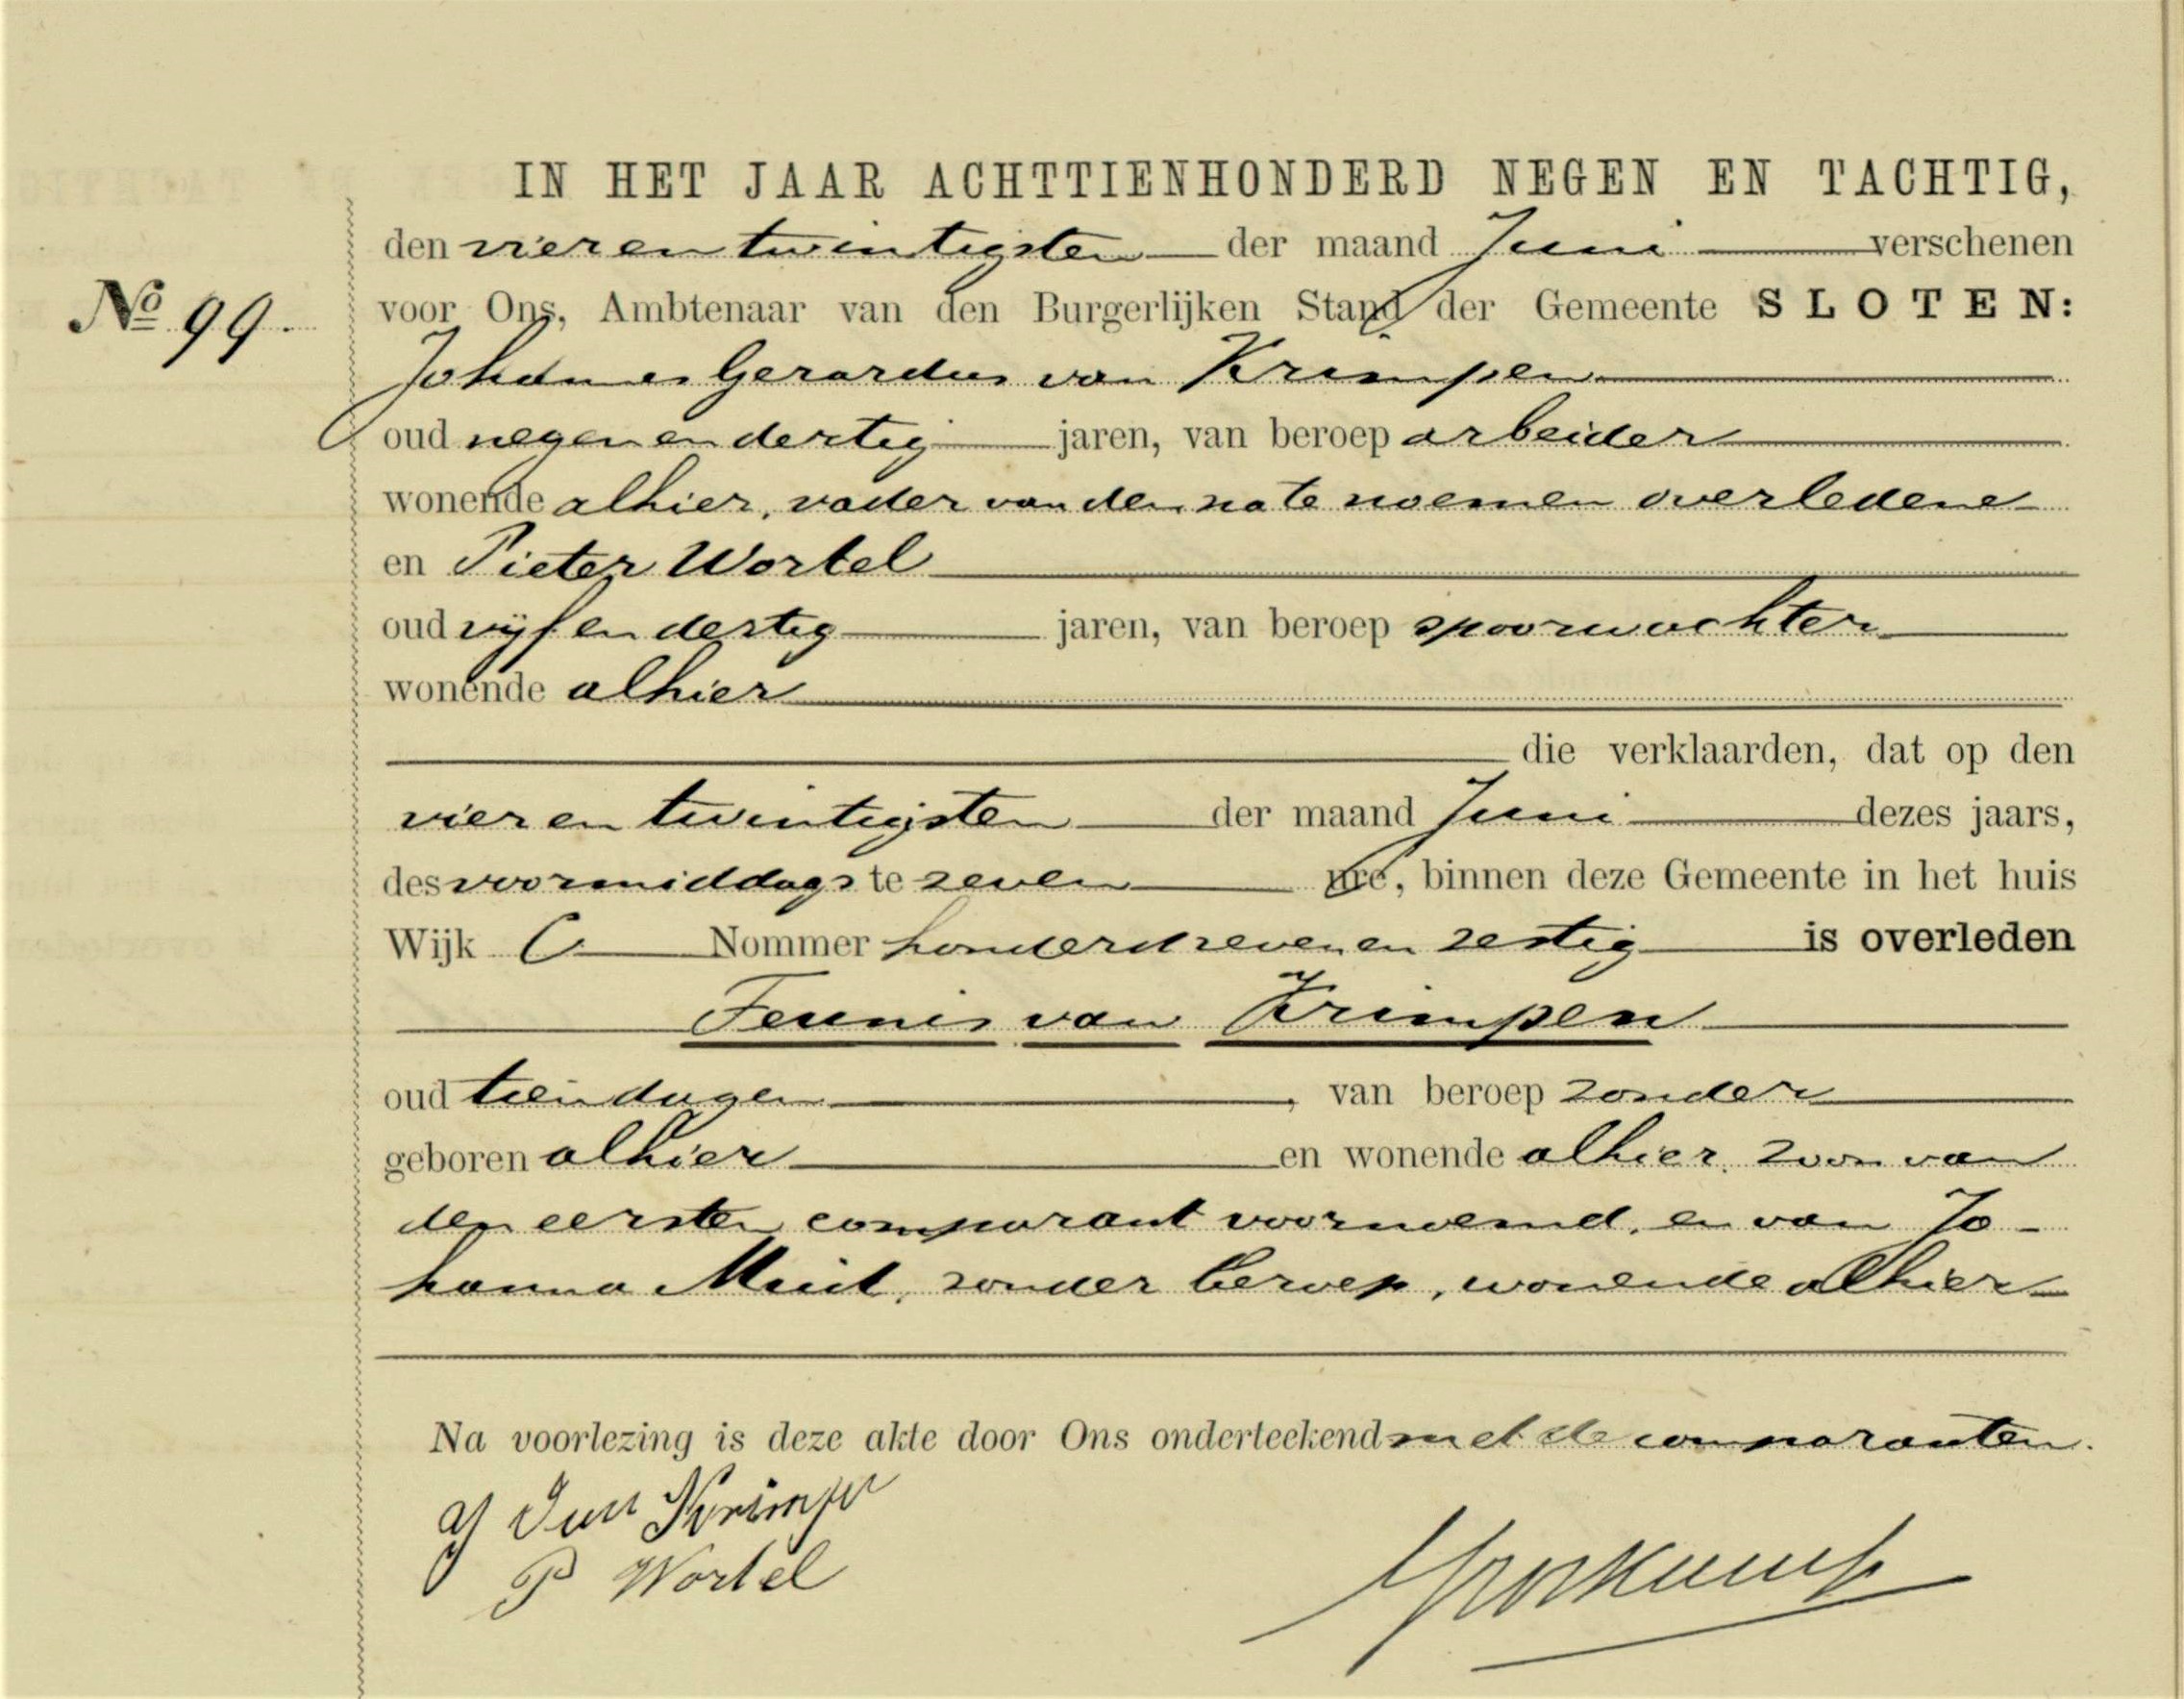 IN HET JAAR ACHTTIENHONDERD NEGEN EN TACHTIG,
den vier en twintigsten der maand Juni verschenen
No 99.
voor Ons, Ambtenaar van den Burgerlijken Stand der Gemeente SLOTEN:
Johannes Gerardus van Krimpen
oud negen en dertig jaren, van beroep arbeider
wonende alhier, vader van den na te noemen overledene
en Pieter Wortel
oud vijf en dertig jaren, van beroep spoorwachter
wonende alhier
die verklaarden, dat op den
vier en twintigsten der maand Juni dezes jaars,
des voormiddags te zeven ure, binnen deze Gemeente in het huis
Wijk C Nommer honderd zeven en zestig is overleden
Teunis van Krimpen
oud tien dagen, van beroep zonder
geboren alhier en wonende alhier, zoon van
den eersten comparant voornoemd, en van Jo-
hanna, zonder beroep, wonende alhier
Na voorlezing is deze akte door Ons onderteekend met de comparanten.
van Krimpen
P Wortel